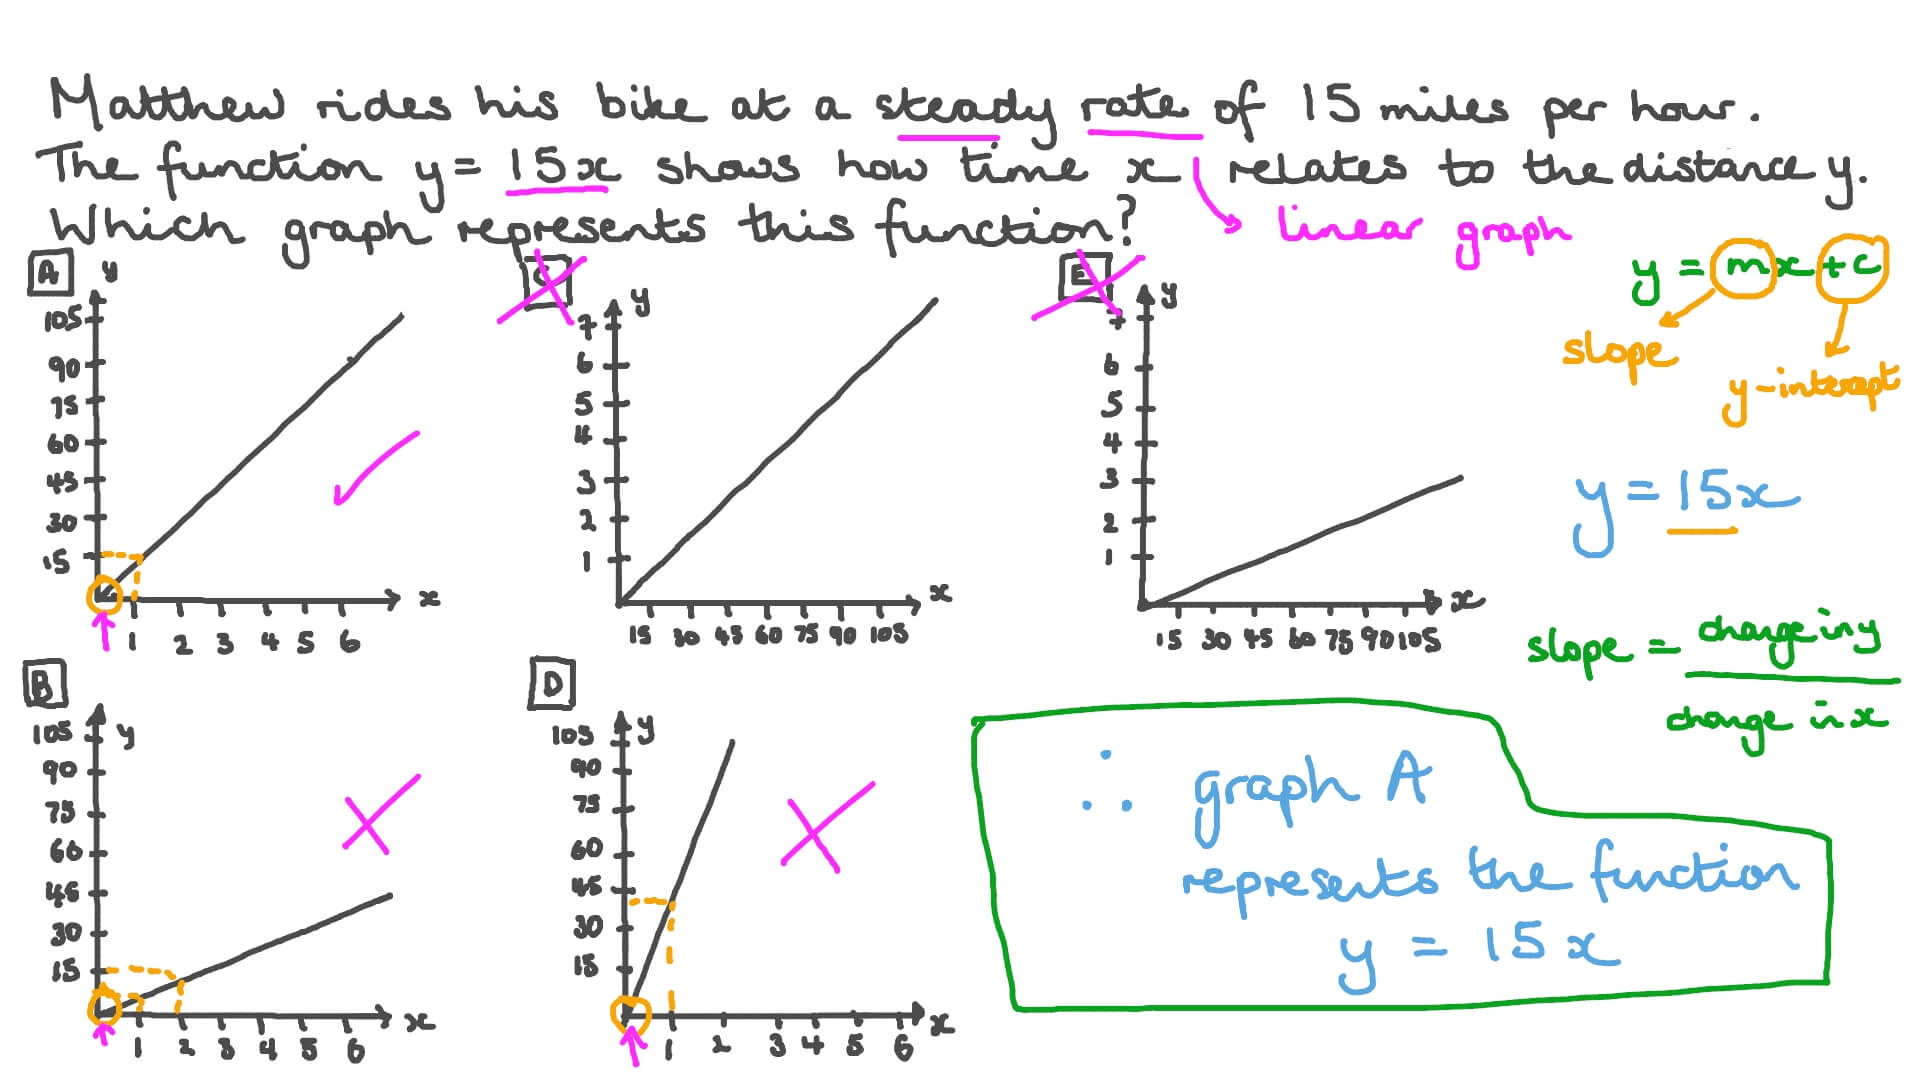 Matthew rides his bike at a steady rate of 15 miles per hour.
The function y = 15x shows how time x relates to the distance y.
Which graph represents this function?
linear graph
y = mx + c
slope
y-intercept
y = 15x
slope = change in y
change in x
A
y
105
90
75
60
45
30
15
1 2 3 4 5 6
x
C
y
7
6
5
4
3
2
1
15 30 45 60 75 90 105
x
E
y
7
6
5
4
3
2
1
15 30 45 60 75 90 105
x
B
y
105
90
75
60
45
30
15
1 2 3 4 5 6
x
D
y
105
90
75
60
45
30
15
1 2 3 4 5 6
x
∴ graph A
represents the function
y = 15x